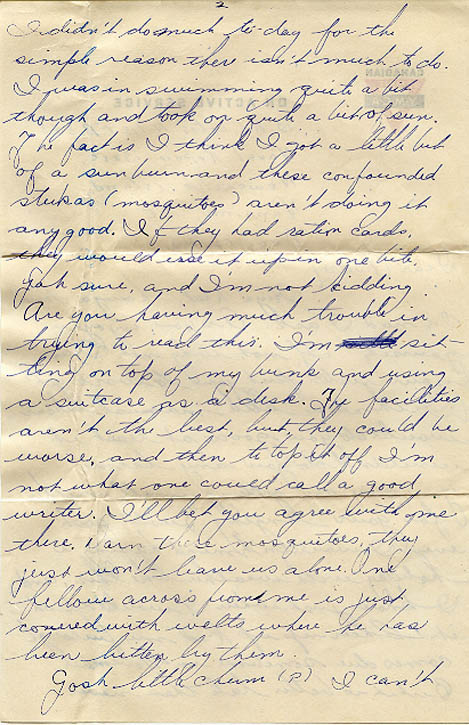 2
I didn't do much to-day for the
simple reason there isn't much to do.
I was in swimming quite a bit
though and took on quite a bit of sun.
The fact is I think I got a little bit
of a sun burn and these confounded
stukas (mosquitoes) aren't doing it
any good. If they had ration cards,
they would use it up in one bite.
Yah sure, and I'm not kidding.
Are you having much trouble in
trying to read this. I'm sit-
ting on top of my bunk and using
a suitcase as a desk. The facilities
aren't the best, but they could be
worse, and then to top it off I'm
not what one could call a good
writer. I'll bet you agree with me
there. Darn these mosquitoes, they
just won't leave us alone. One
fellow across from me is just
covered with welts where he has
been bitten by them.
Gosh little chum (P) I can't
CANADIAN
ON ACTIVE SERVICE